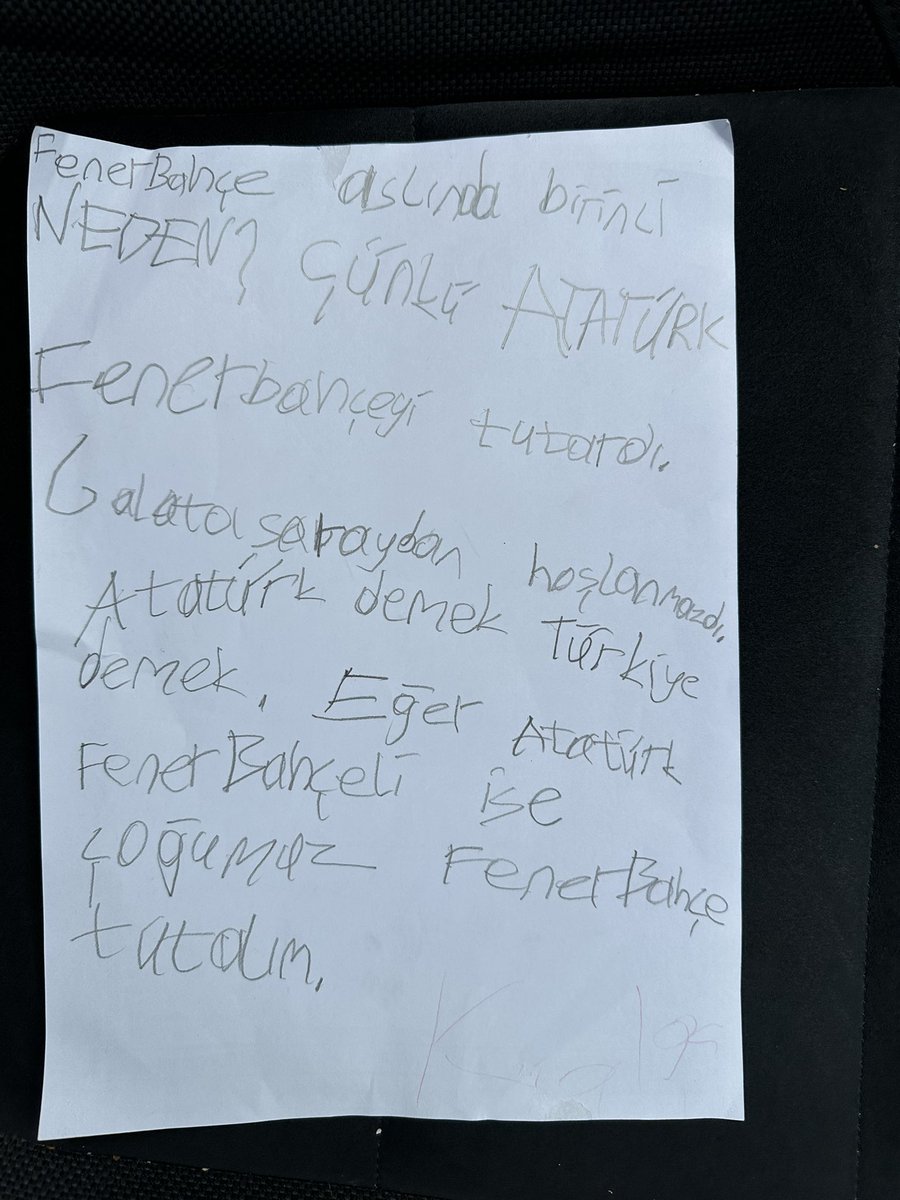 FenerBahçe aslında birinci
NEDEN? ÇÜNKÜ ATATÜRK
Fenerbahçeyi tutardı.
Galatasaraydan hoşlanmazdı.
Atatürk demek Türkiye
demek. Eğer Atatürk
FenerBahçeli ise
çoğumuz FenerBahçe
tutalım.